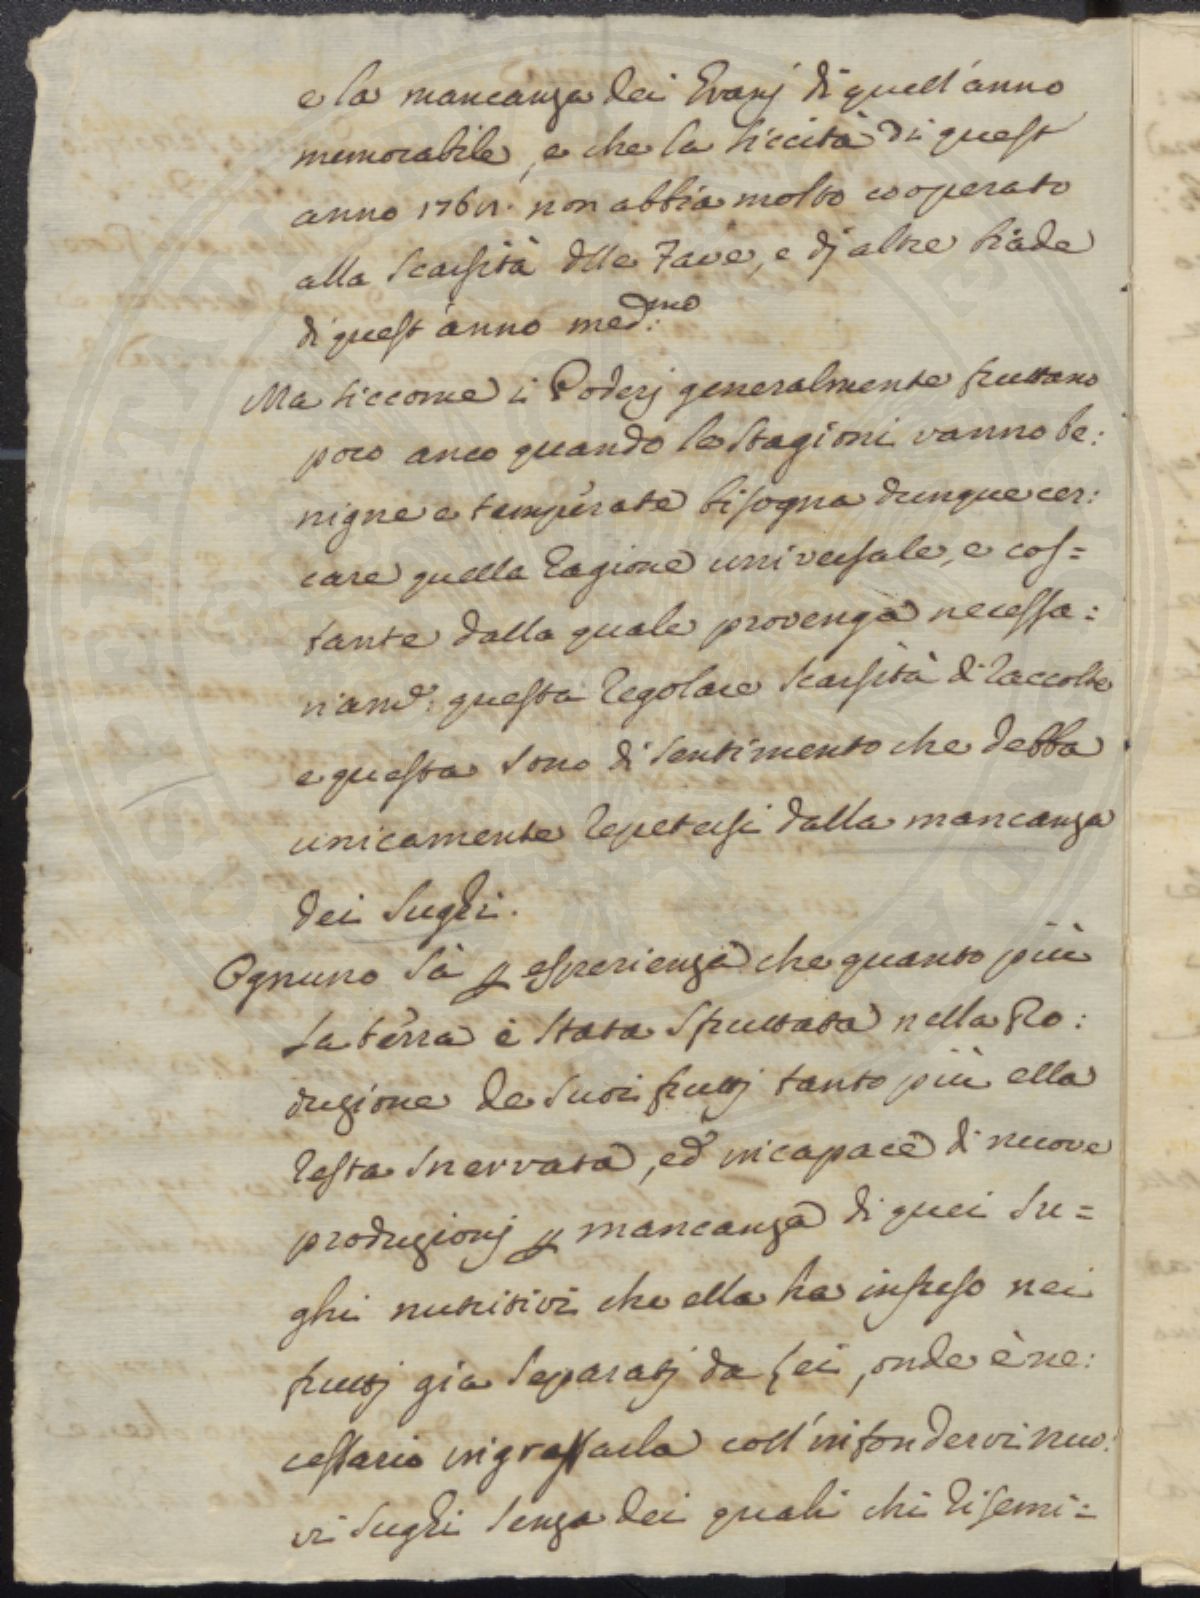 e la mancanza dei Granj di quell'anno
memorabile, e che la siccità di quest
anno non abbia molto cooperato
alla scarsità dlle Fave, e dj altre biade
di quest'anno med:mo
Ma siccome i Poderj generalmente fruttano
poco anco quando le stagioni vanno be:
nigne e temperate bisogna dunque cer:
care quella ragione universale, e cos=
tante dalla quale provenga necessa:
riamte: questa regolare scarsità di raccolte
e questa sono di sentimento che debba
unicamente repetersi dalla mancanza
dei sughi.
Ognuno sà p esperienza che quanto più
la terra è stata sfruttata nella Pro:
duzione de suoi fruttj tanto più ella
resta snervata, ed incapace di nuove
produzionj p mancanza di quei su=
ghi nutritivi che ella ha infuso nei
fruttj già separatj da Lei, onde è ne:
cessario ingrassarla coll'infondervi nuo:
vi sughi senza dei quali chi risemi=